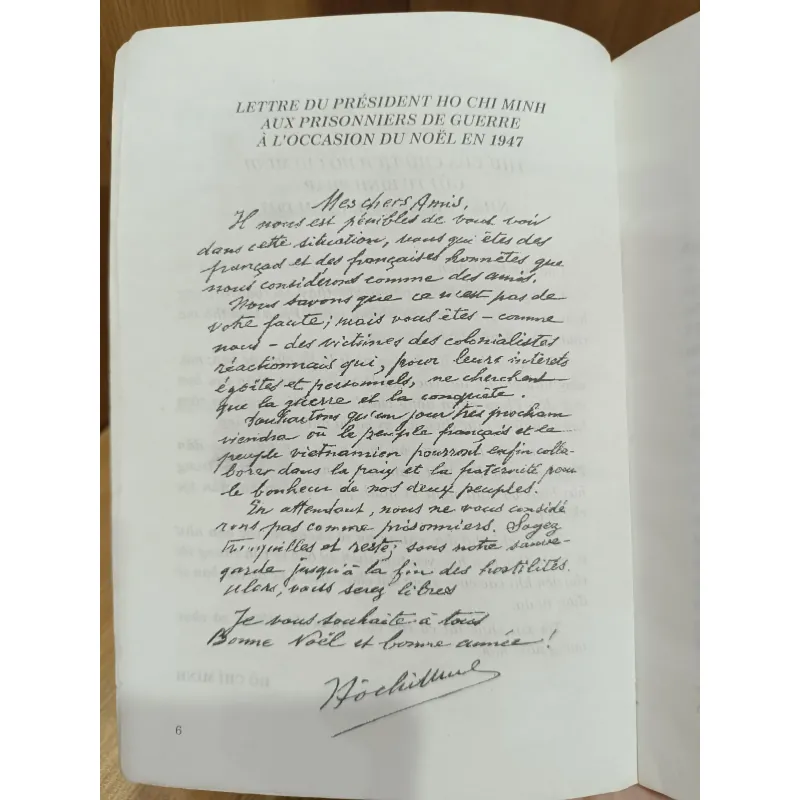 LETTRE DU PRÉSIDENT HO CHI MINH
AUX PRISONNIERS DE GUERRE
À L'OCCASION DU NOËL EN 1947
Mes chers Amis,
Il nous est pénibles de vous voir
dans cette situation, vous qui êtes des
français et des françaises honnêtes que
nous considérons comme des amis.
Nous savons que ce n'est pas de
votre faute; mais vous êtes - comme
nous - des victimes des colonialistes
réactionnais qui, pour leurs intérêts
égoïstes et personnels, ne cherchent
que la guerre et la conquête.
Souhaitons qu'un jour très prochain
viendra où le peuple français et le
peuple vietnamien pourront enfin colla-
borer dans la paix et la fraternité pour
le bonheur de nos deux peuples.
En attendant, nous ne vous considé
rons pas comme prisonniers. Soyez
tranquilles et restez sous notre sauve-
garde jusqu'à la fin des hostilités.
Alors, vous serez libres
Je vous souhaite à tous
Bonne Noël et bonne année!
Hôchiminh
6